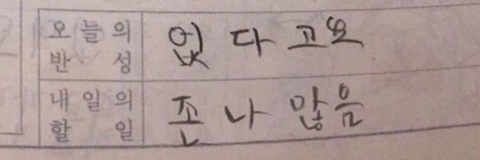 오늘의
반성
없다고요
내일의
할 일
존나 많음